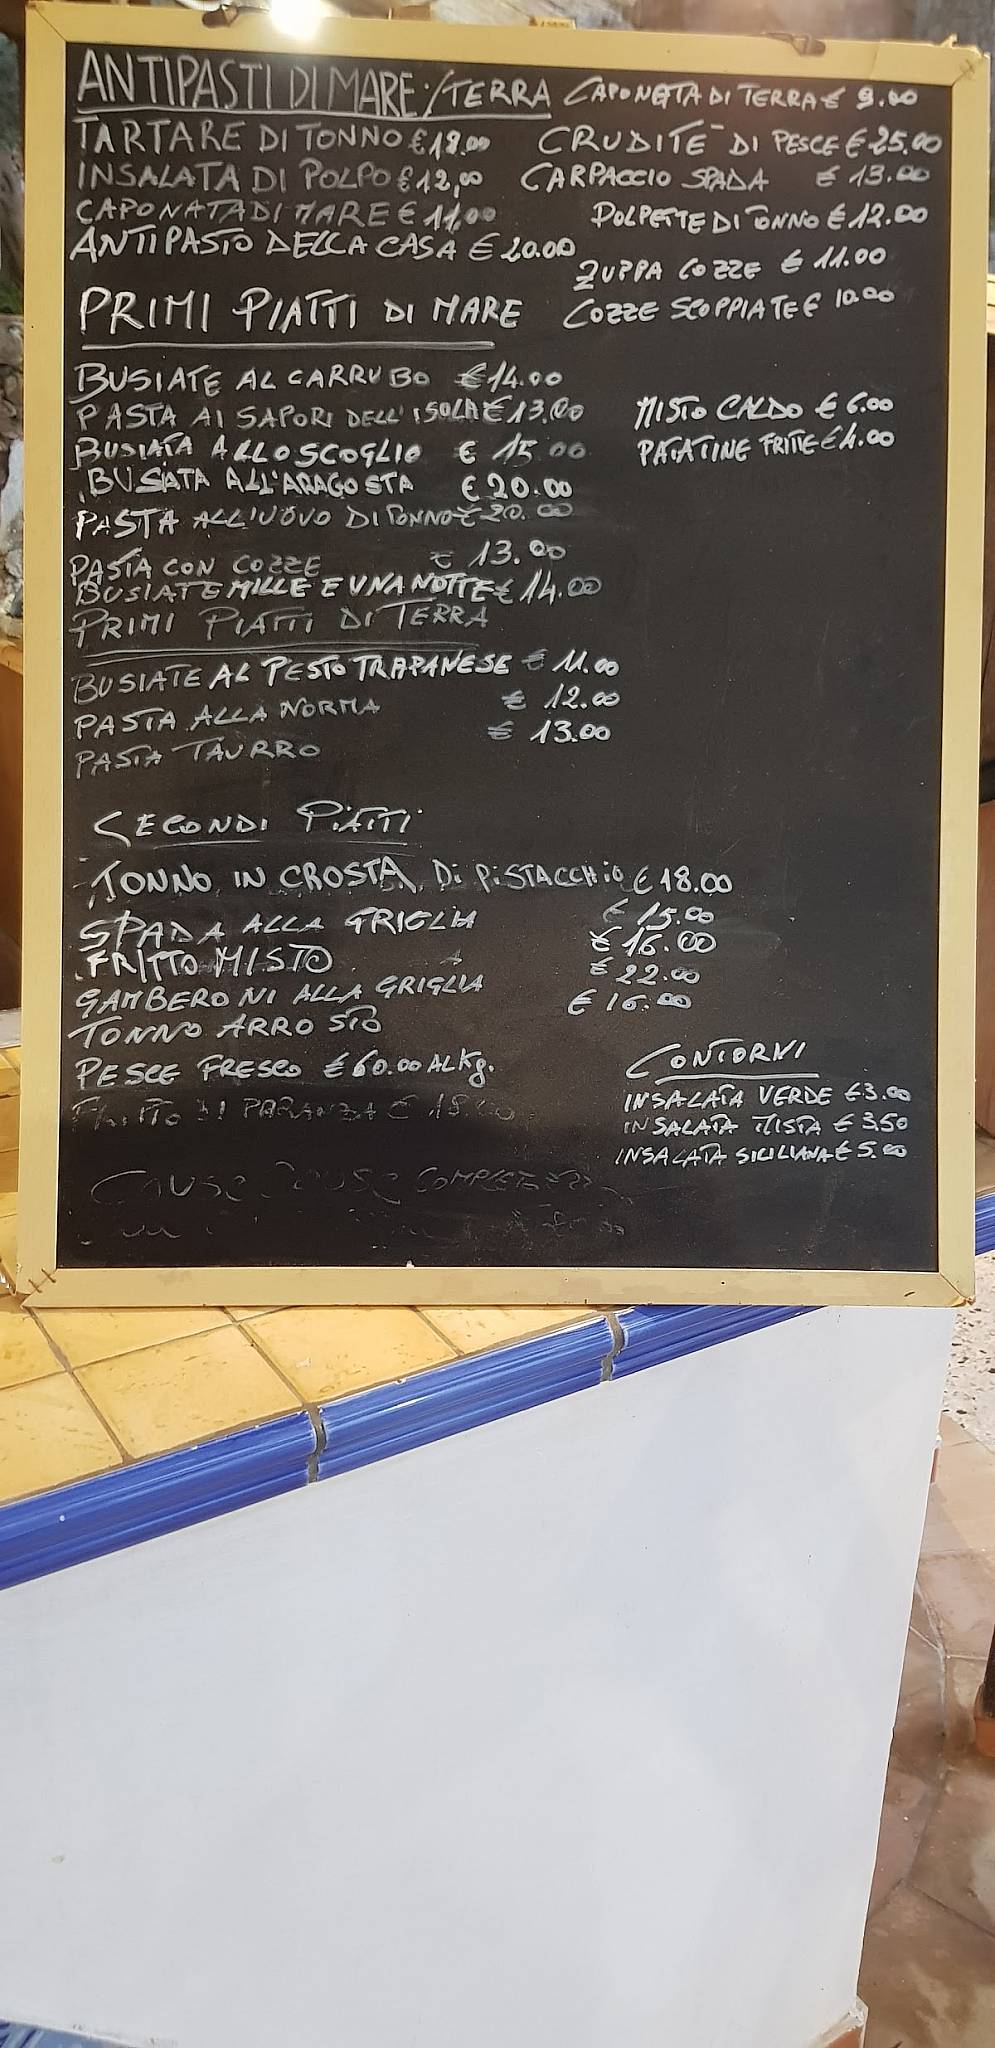 ANTIPASTI DI MARE:/TERRA
TARTARE DI TONNO €18.00
INSALATA DI POLPO €12,00
CAPONATA DI MARE € 11,00
ANTIPASTO DELLA CASA € 20.00
CAPONATA DI TERRA € 9.00
CRUDITE DI PESCE € 25.00
CARPACCIO SPADA € 13.00
POLPETTE DI TONNO € 12.00
ZUPPA COZZE € 11.00
COZZE SCOPPIATE € 10.00
PRIMI PIATTI DI MARE
BUSIATE AL CARRUBO €14.00
PASTA AI SAPORI DELL'ISOLA € 13.00
BUSIATA ALLO SCOGLIO € 15.00
BUSIATA ALL'ARAGOSTA € 20.00
PASTA ALL'UOVO DI TONNO € 20.00
PASTA CON COZZE € 13.00
BUSIATE MILLE E UNA NOTTE € 14.00
MISTO CALDO € 6.00
PATATINE FRITTE € 4.00
PRIMI PIATTI DI TERRA
BUSIATE AL PESTO TRAPANESE € 11.00
PASTA ALLA NORMA € 12.00
PASTA TAURRO € 13.00
SECONDI PIATTI
TONNO IN CROSTA DI PISTACCHIO € 18.00
SPADA ALLA GRIGLIA € 15.00
FRITTO MISTO € 16.00
GAMBERONI ALLA GRIGLIA € 22.00
TONNO ARROSTO € 16.00
PESCE FRESCO € 60.00 AL Kg.
DI PARANZA € 18.00
COMPLETO
CONTORNI
INSALATA VERDE € 3.00
INSALATA MISTA € 3.50
INSALATA SICILIANA € 5.00